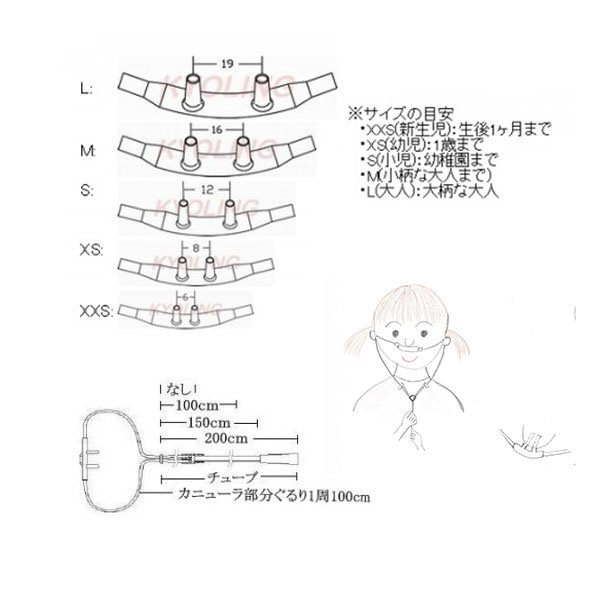 L:
19
KYOLING
M:
16
KYOLING
S:
12
KYOLING
XS:
8
KYOLING
XXS:
6
KYOLING
※サイズの目安
・XXS(新生児):生後1ヶ月まで
・XS(幼児):1歳まで
・S(小児):幼稚園まで
・M(小柄な大人まで)
・L(大人):大柄な大人
なし
100cm
150cm
200cm
チューブ
カニューラ部分ぐるり1周100cm